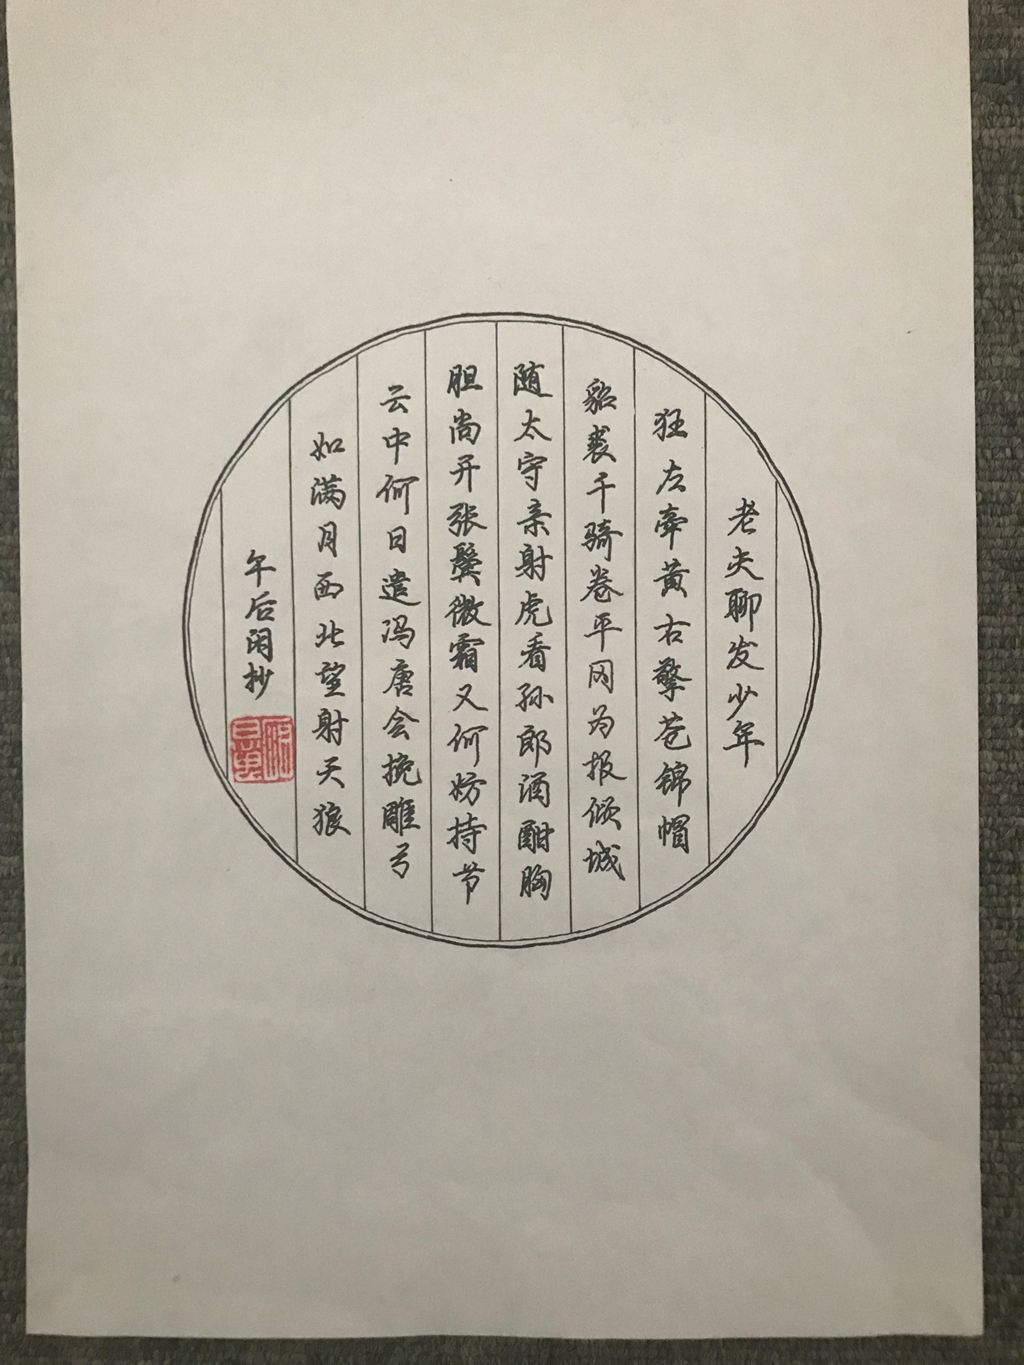 老夫聊发少年
狂左牵黄右擎苍锦帽
貂裘千骑卷平冈为报倾城
随太守亲射虎看孙郎酒酣胸
胆尚开张鬓微霜又何妨持节
云中何日遣冯唐会挽雕弓
如满月西北望射天狼
午后闲抄